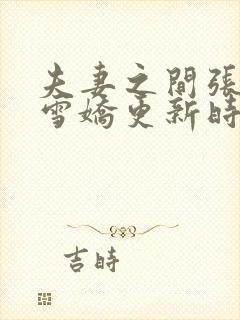 夫妻之間張
雪嬌更新時
吉時